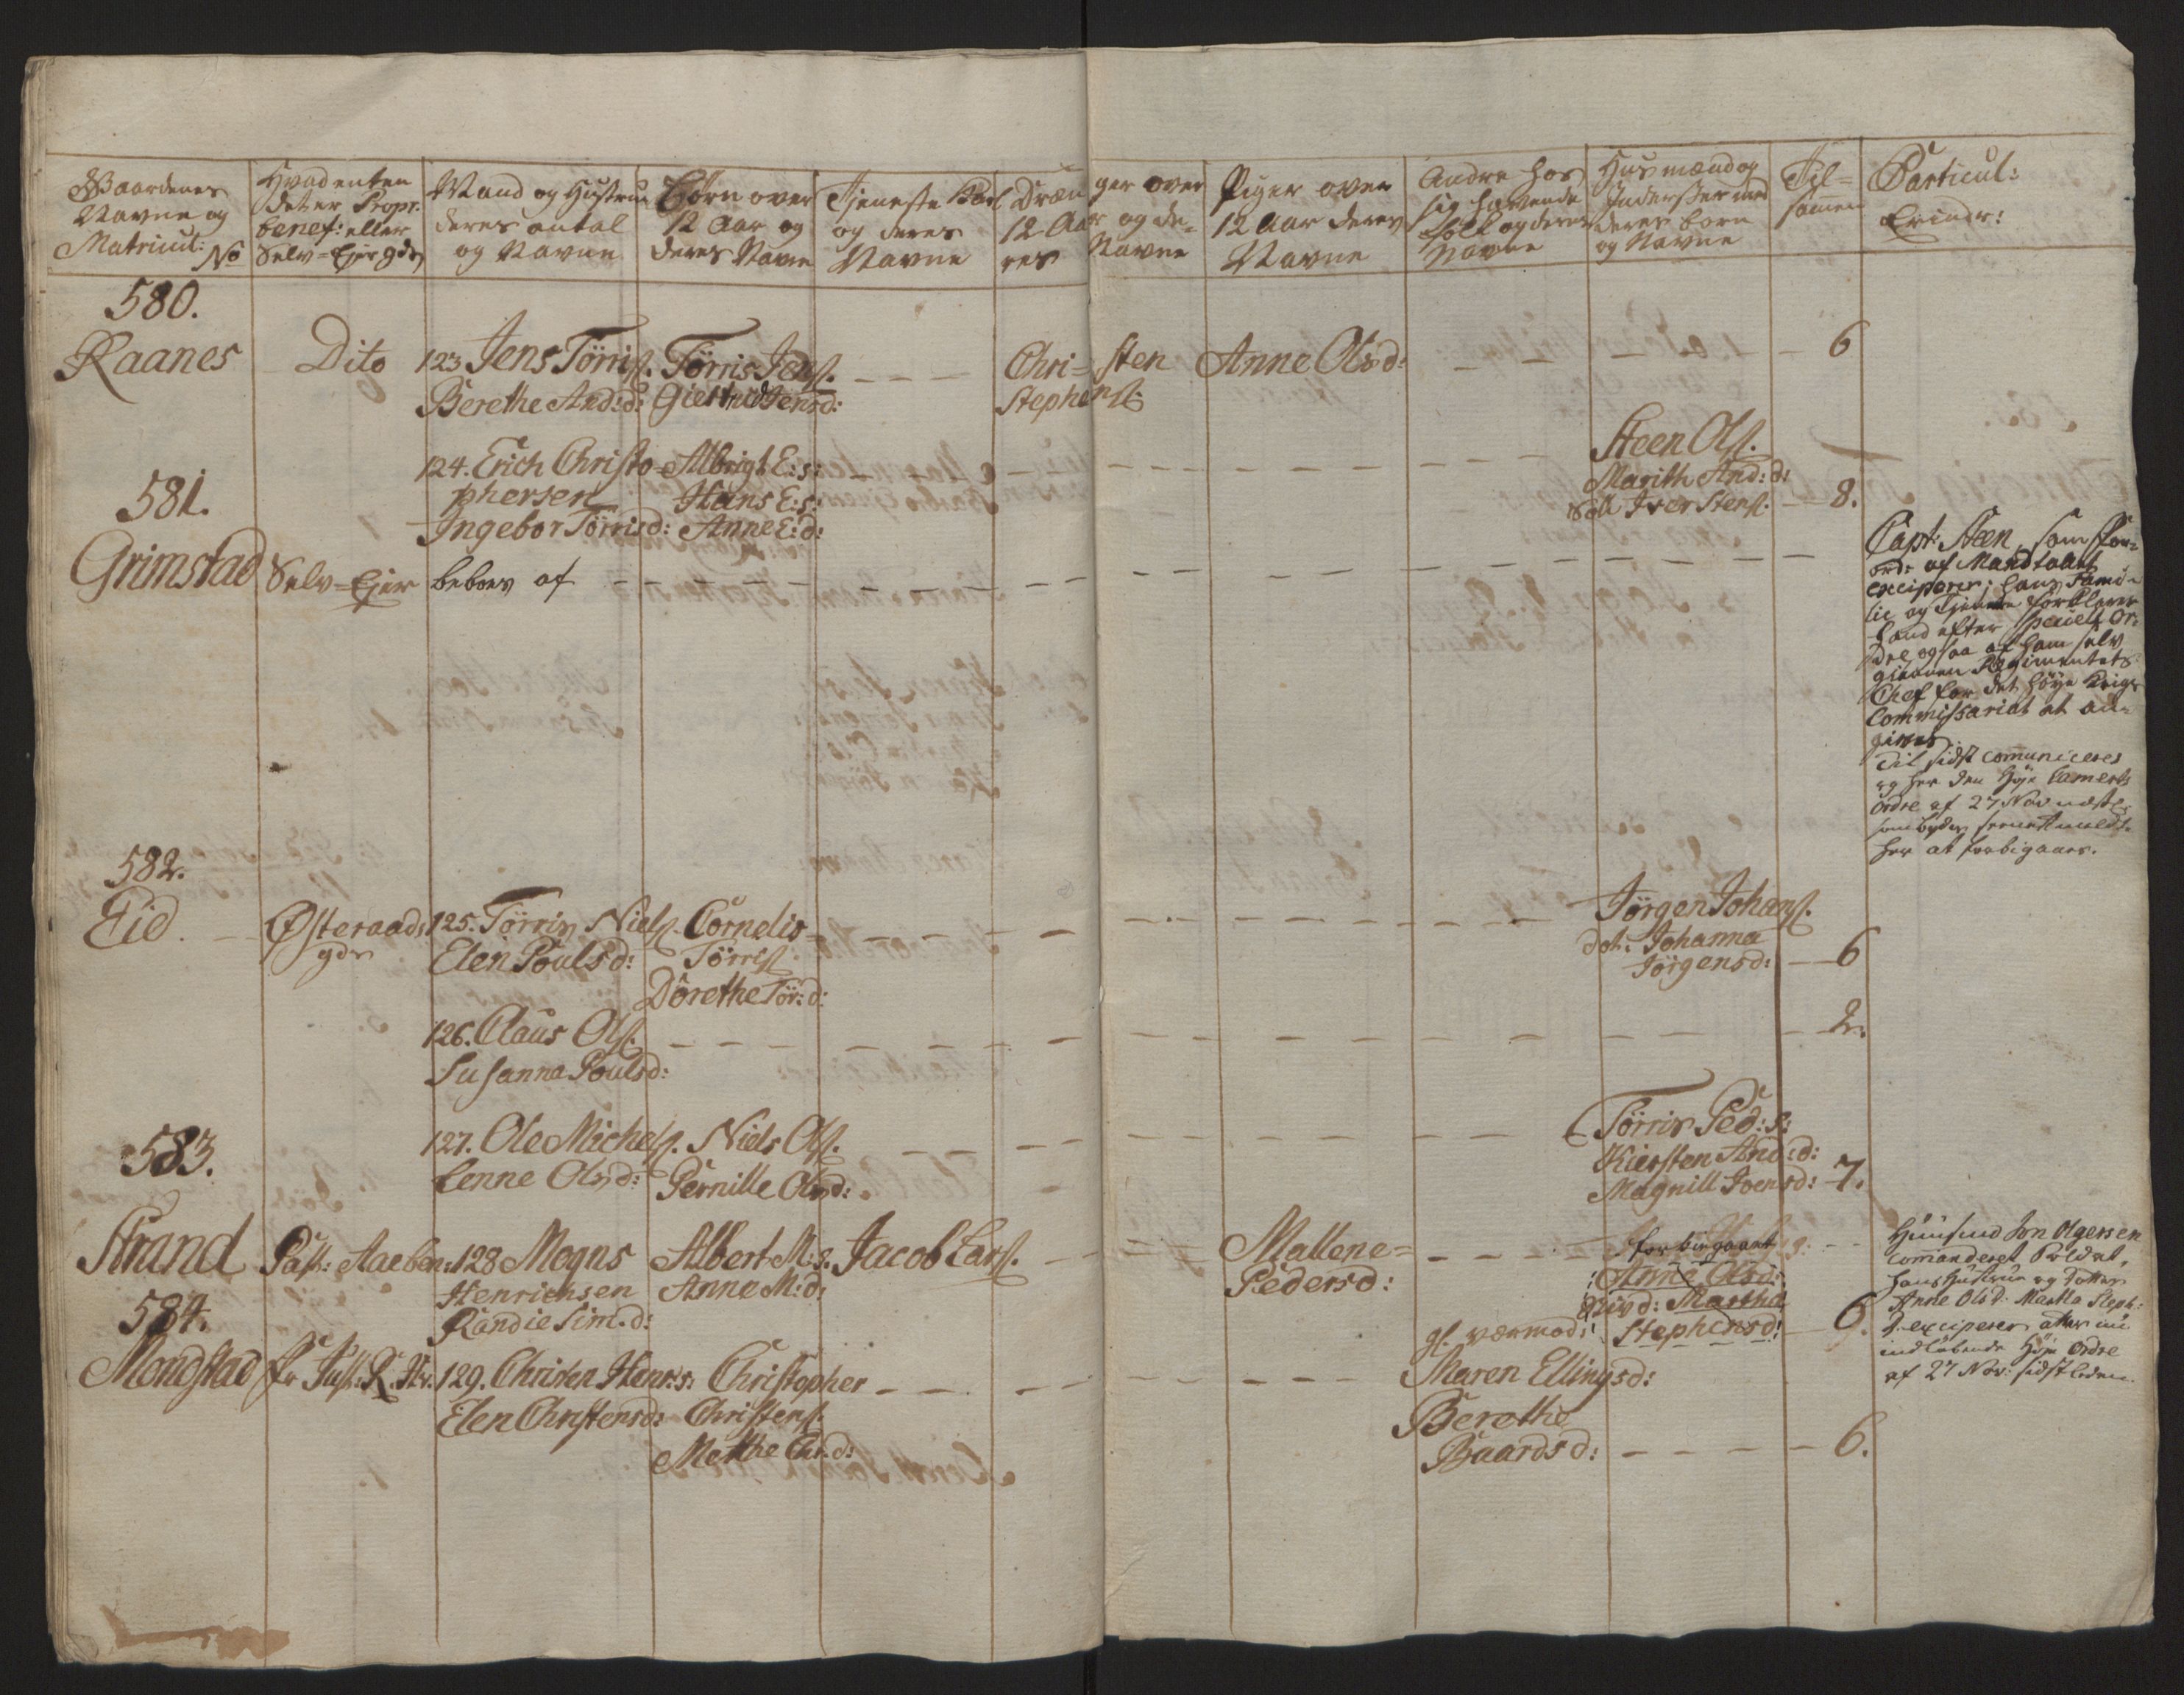 Gaardenes
Navne og
Matricul:
No
Hvad enten
det er Propr.
benef: eller
Selv-Ejer gds
Mand og Hustrue
deres antal
og Navne
Børn over
12 Aar og
deres Navne
Tjeneste Karl
og deres
Navne
Drænger over
12 Aar og de-
res Navne
Piger over
12 Aar deres
Navne
Andre hos
sig havende
Folk og deres
Navne
Husmænd og
Inderster med
deres børn
og Navne
Til-
sammen
Particul:
Erindr:
580.
Raanes
Dito
123 Jens Törris.
Berethe And:d:
Törris Jens.
Giertrud Jensd:
Chri-sten
Stephens.
Anne Olsd:
6
581.
Grimstad
Selv-Ejer
124. Erich Christo-
phersen
Ingebor Törrisd:
beboes af
Albrigt E:s:
Hans E:s:
Anne E:d:
Steen Ols.
Marith And:d:
Iver Stens.
8.
Capt: Steen, som
af Mandtallet
exciperer; hans Fami-
lie og Tjenere forklarer
hand efter speciel Or-
dre ogsaa af ham selv
Regimentets
Chef for det høye Krigs
Commissariat at an-
gives.
Til sidst communiceres
og her den Høje Camerets
Ordre af 27 Nov næst
som byder
her at forbigaaes.
582.
Eid.
Østeraads
gds
125. Törris Niels.
Elen Poulsd:
Cornelis
Törris.
Dorethe Tör:d:
Jörgen Johans.
dot: Johanna
Jörgensd:
6
126. Claus Ols.
Susanna Poulsd:
2.
583.
Strand
Past: Aaeben:
127. Ole Michels.
Lenne Olsd:
Niels Ols.
Pernille Olsd:
Törris Ped:s:
Kiersten And:d:
Magnill Joensd:
7.
128 Mogns
Henrichsen
Randie Sim.d:
Albert M:s.
Anne M:d:
Jacob Lars.
Mallene
Pedersd:
forbigaaet
Anne Olsd:
Martha
Stephensd:
6.
Huusmd Jon Olgersen
commanderet Soldat,
hans Hustrue og Dotter
Anne Olsd: Martha Steph:
d. exciperes efter nu
indløbende Høje Ordre
af 27 Nov: sidstleden.
584.
Mondstad
129. Christen Henr:s:
Elen Christensd:
Christopher
Christens.
Mette Chr.d:
gl. værmod:
Maren Ellingsd:
Berethe
Baardsd:
6.